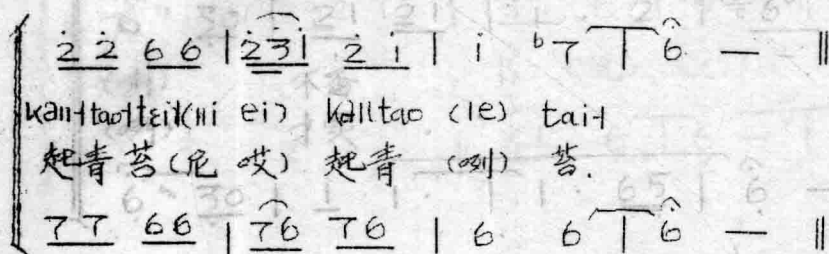 2̇ 2̇ 6 6 | 2̇ 3̇ 1̇ 2̇ 1̇ | 1̇ ♭7 | 6 — ‖
kan˧tao˧tɛi˧(ni ei) kan˥tao (le) tai˧
起青苔(尼 哎) 起青 (咧) 苔.
7 7 6 6 | 7 6 7 6 | 6 6 | 6 — ‖